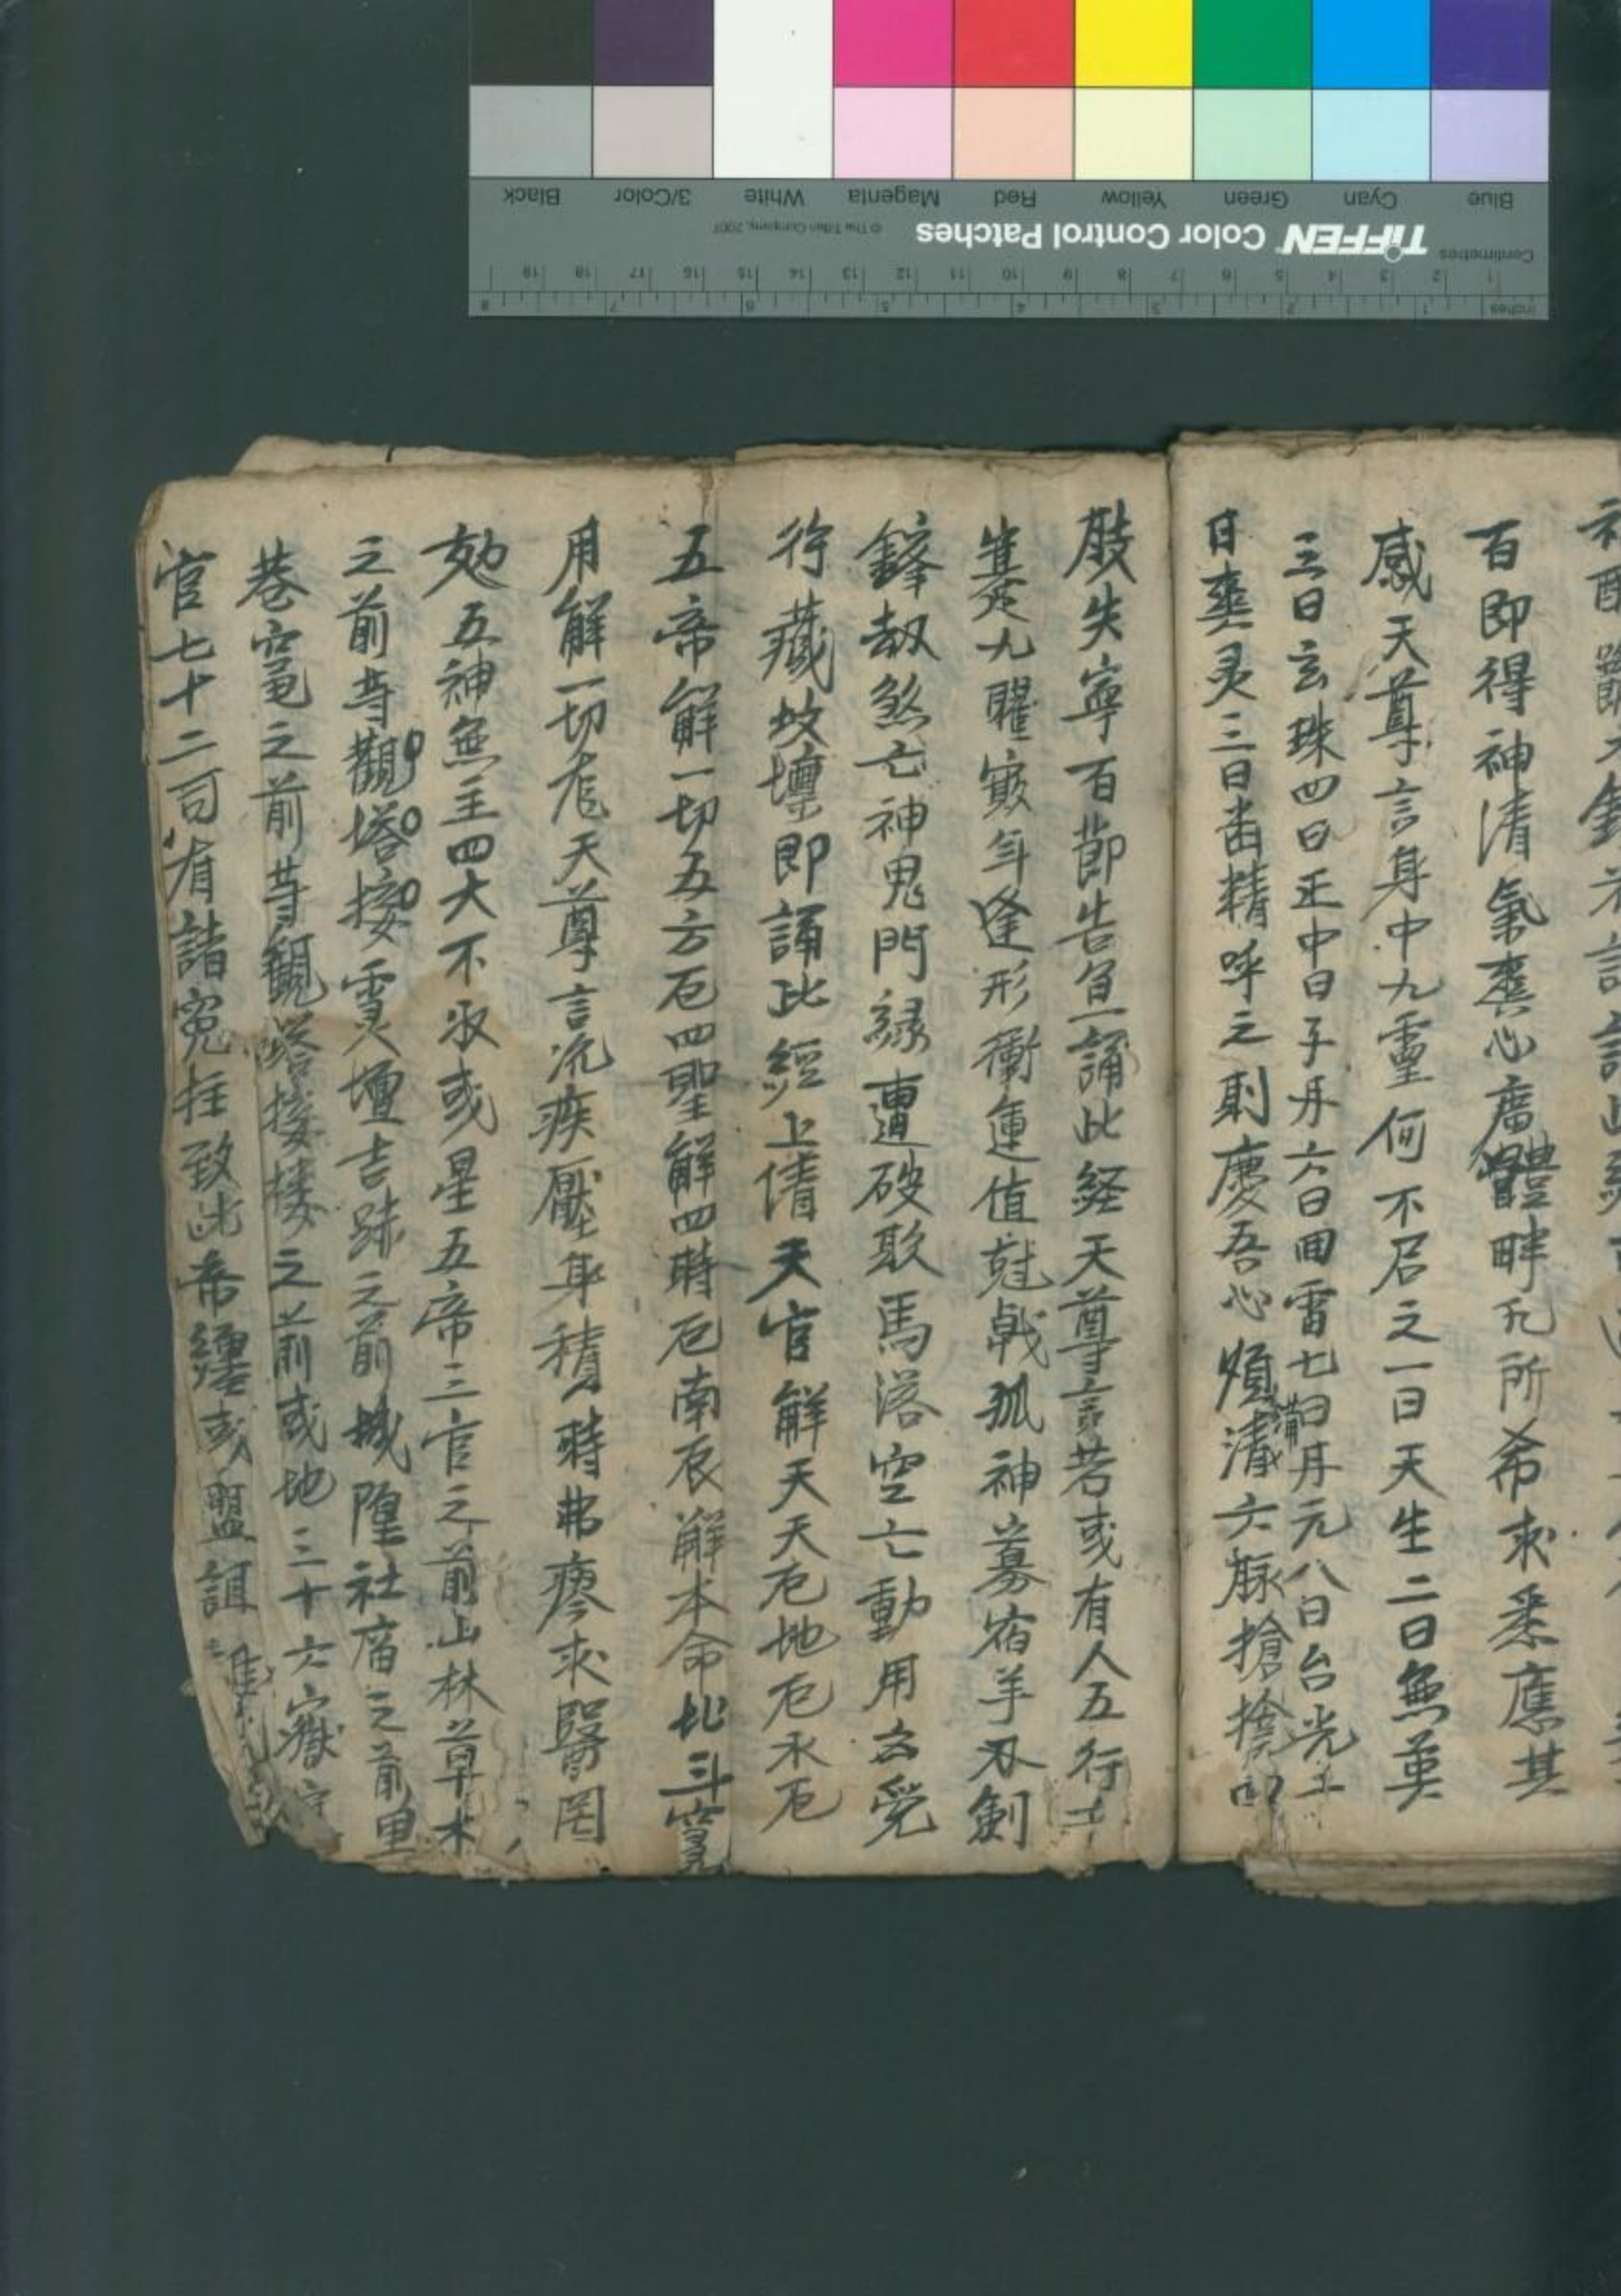 百即得神清氣爽心廣體畔凢所希求悉應其
感天尊言身中九靈何不召之一日天生二曰無英
三日玄珠四曰正中日子丹六日回雷七曰丹元八日台光土
日爽灵三日出精呼之則慶吾心煩滿清六脉搶搶
肢失寧百節告急誦此経天尊言若或有人五行
九曜年逢形衝運值尅戟孤神寡宿羊刃劍
鋒劫煞亡神鬼門綠遭破敗馬落空亡動用出
行藏坟壇即誦此經上請天官解天天厄地厄水厄
五帝解一切五方厄四聖解四時厄南辰解本命北斗
用解一切厄天尊言沉疾壓身積時弗瘳求醫罔
効五神無主四大不收或星五帝三官之前山林草木
之前寺觀塔接灵壇古跡之前城隍社庙之前里
巷竃之前寺觀塔接楼之前或地三十六嶽
官七十二司有諸冤枉致此希纏或盟詛
Black
3/Color
White
Magenta
Red
Yellow
Green
Cyan
Blue
© The Tiffen Company, 2007
TIFFEN Color Control Patches
Centimetres
Inches